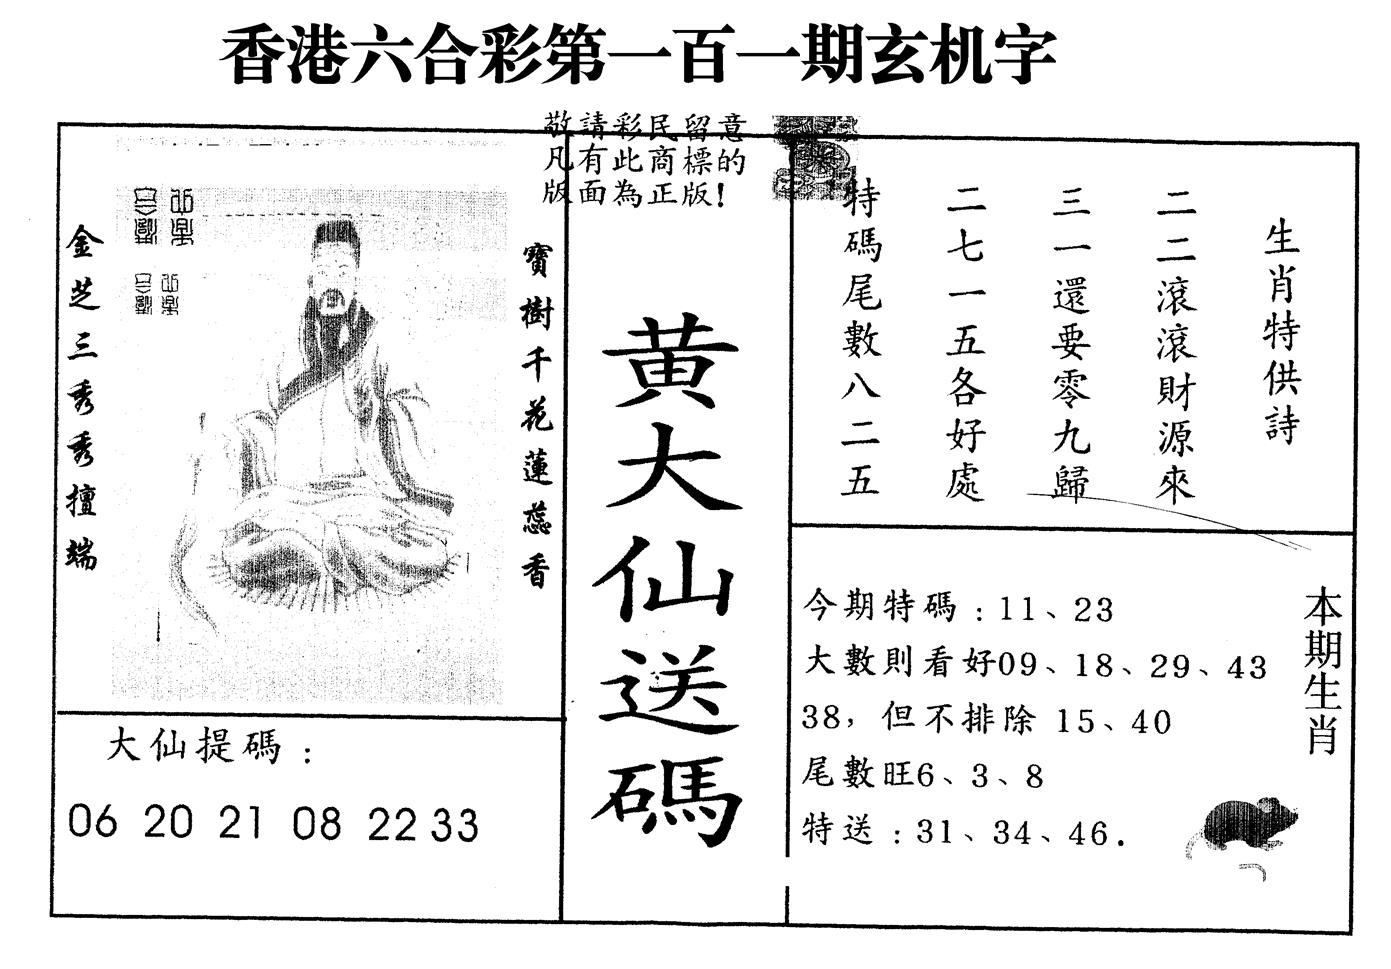 香港六合彩第一百一期玄机字
敬請彩民留意
凡有此商標的
版面為正版!
寶樹千花蓮蕊香
金芝三秀秀擅端
黄大仙送碼
生肖特供詩
二二滾滾財源來
三一還要零九歸
二七一五各好處
特碼尾數八二五
大仙提碼:
06 20 21 08 22 33
本期生肖
今期特碼:11、23
大數則看好09、18、29、43
38，但不排除 15、40
尾數旺6、3、8
特送:31、34、46.